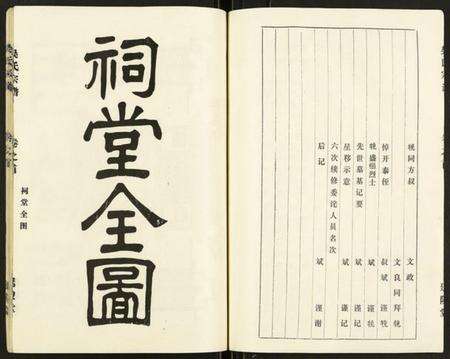 挽同方叔 文政
文良同拜挽
悼开泰侄 叔斌 谨挽
挽盛强烈士 斌 谨挽
先世墓基记要 斌 谨记
星移示意 斌 谨记
六次续修委诧人员名次
后记 斌 谨谢
祠堂全圖
祠堂全图
卷之首